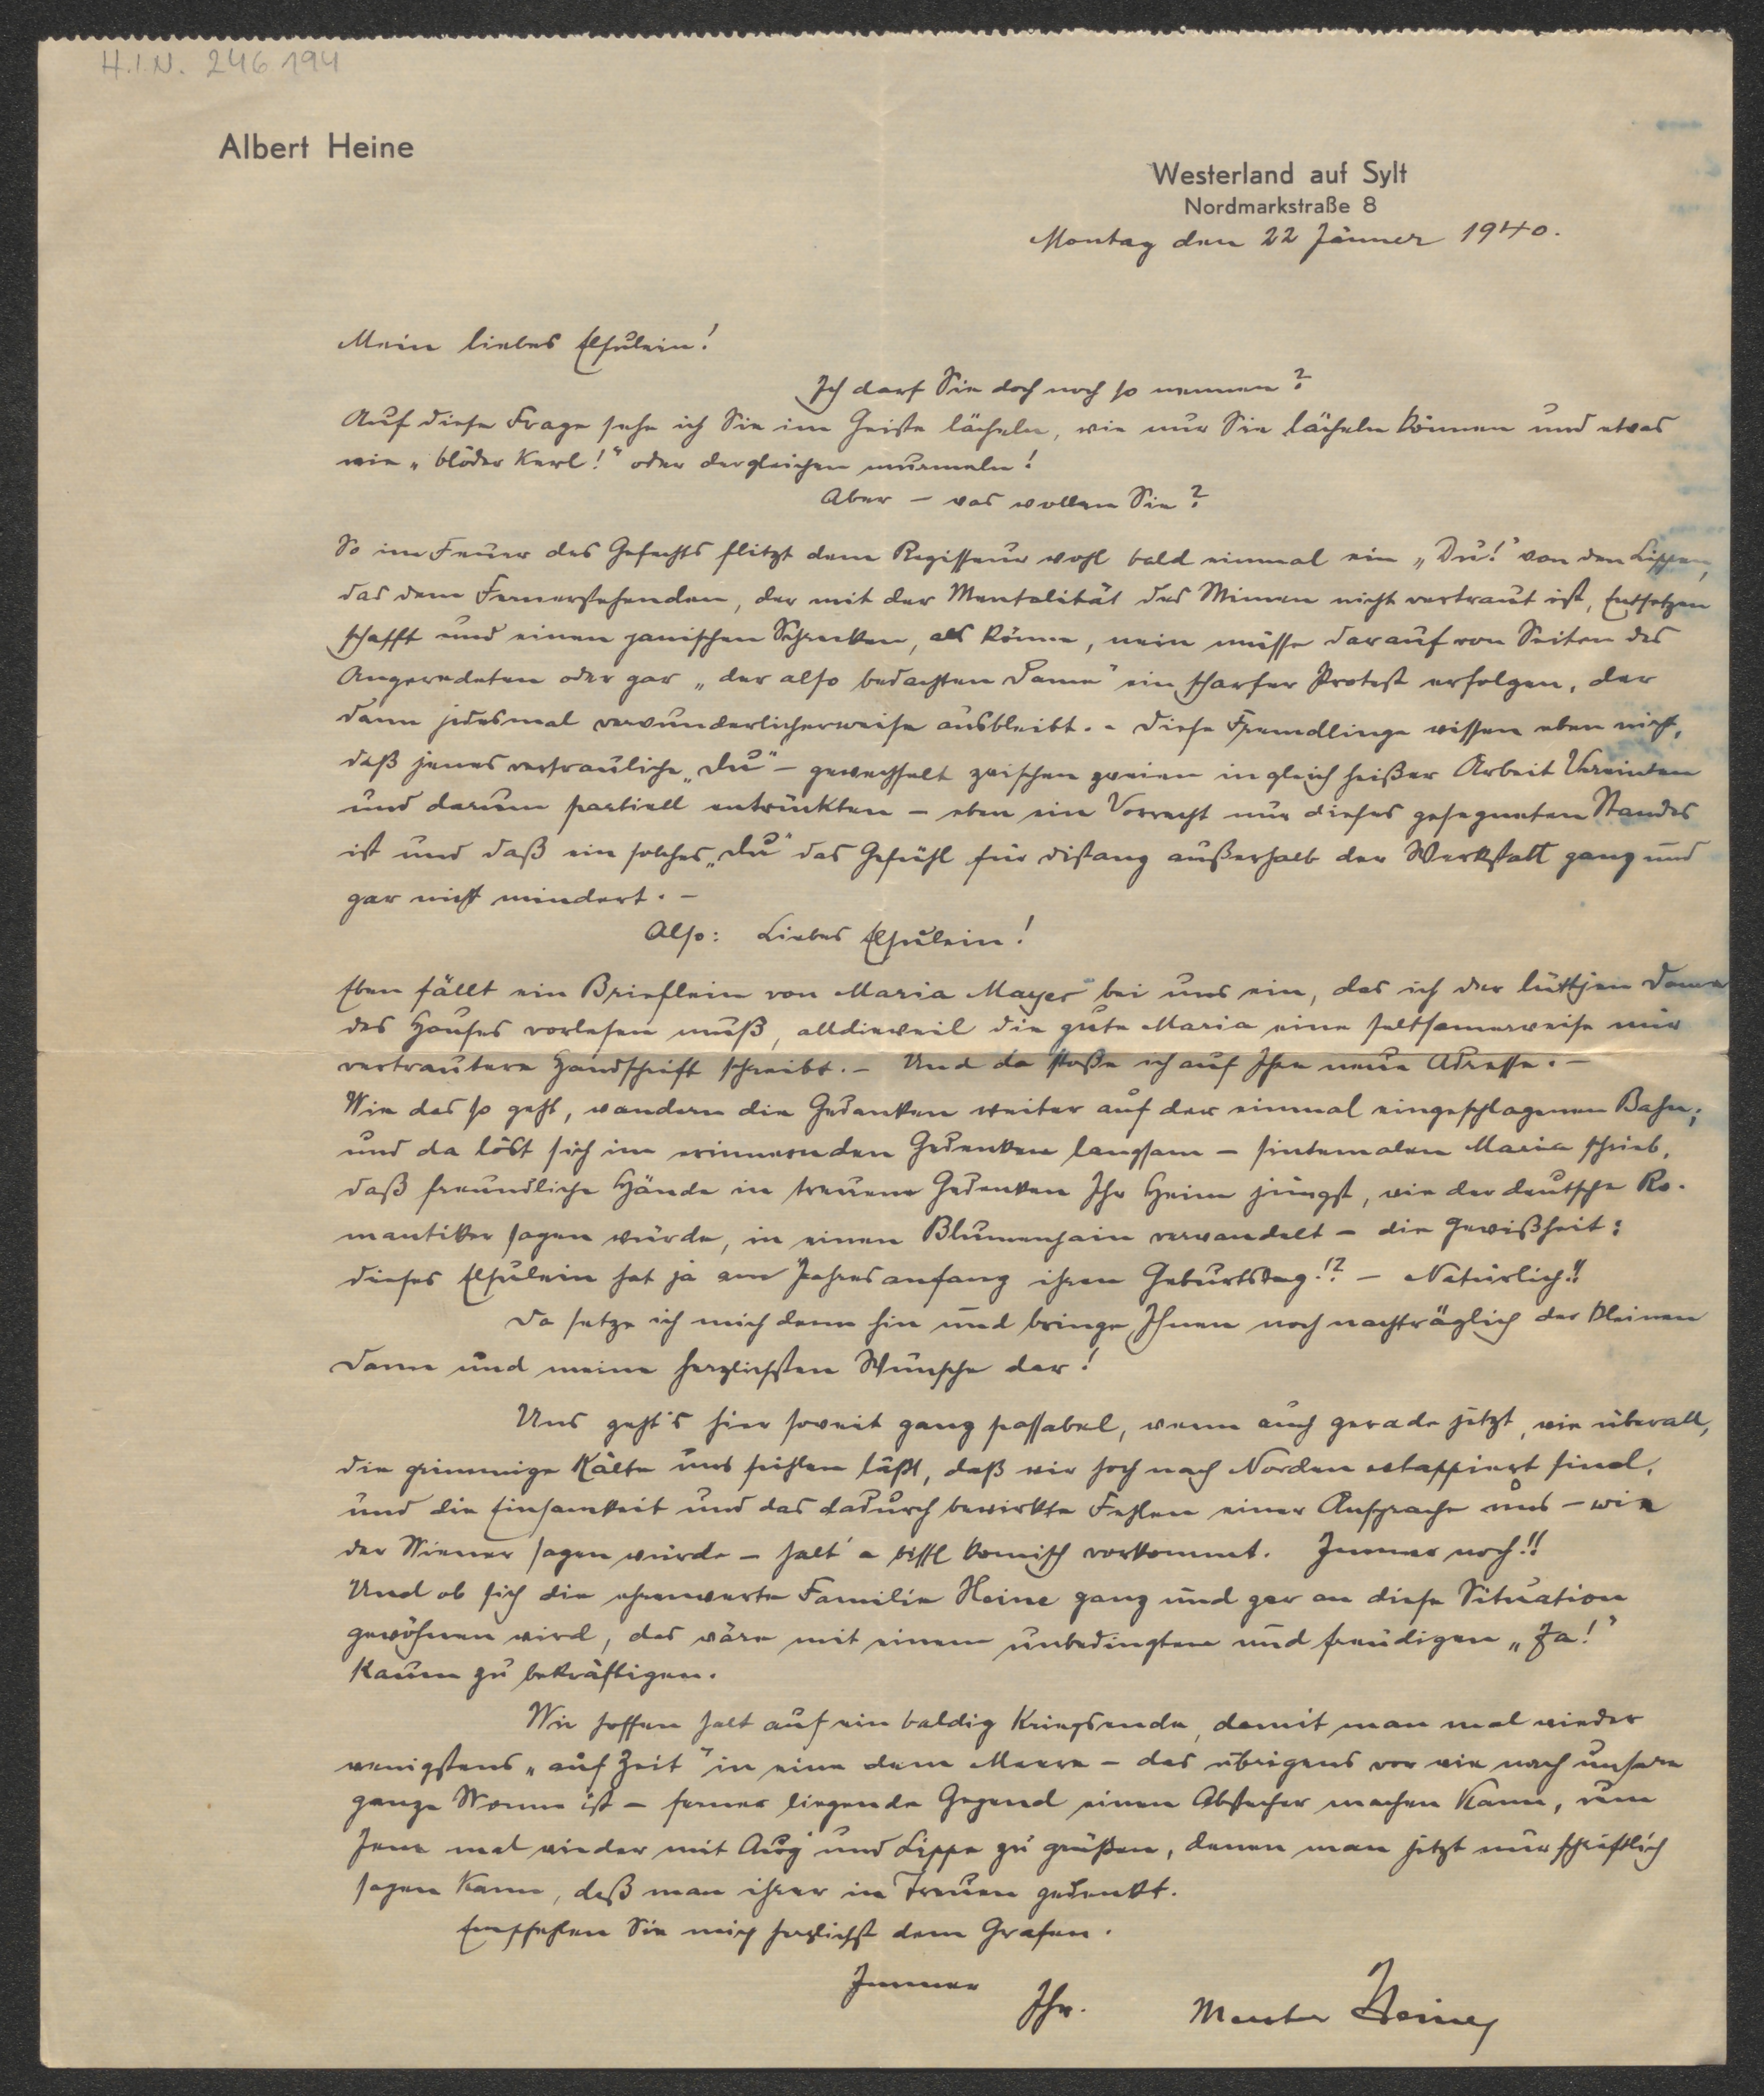 H.I.N. 246 194
Albert Heine
Westerland auf Sylt
Nordmarkstraße 8
Montag den 22 Jänner 1940.
Mein liebes Elsulein!
Ich darf Sie doch noch so nennen?
Auf diese Frage sehe ich Sie im Geiste lächeln, wie nur Sie lächeln können und etwas
wie „blöder Kerl!" oder dergleichen murmeln!
Aber – was wollen Sie?
So im Feuer des Gefechts flitzt dem Regisseur wohl bald einmal ein „Du!" von den Lippen,
das dem Fernerstehenden, der mit der Mentalität des Mimen nicht vertraut ist, Entsetzen
schafft und einen panischen Schrecken, als könne, nein müsse darauf von Seiten des
Angeredeten oder gar „der also bedachten Dame" ein scharfer Protest erfolgen, der
dann jedesmal verwunderlicherweise ausbleibt. – Diese Fremdlinge wissen eben nicht,
daß jenes vertrauliche „Du" – gewechselt zwischen zweien in gleich heißer Arbeit Vereinten
und darum partiell entrückten – eben ein Vorrecht nur dieses gesegneten Standes
ist und daß ein solches „Du" das Gefühl für Distanz außerhalb der Werkstatt ganz und
gar nicht mindert. –
Also: Liebes Elsulein!
Eben fällt ein Brieflein von Maria Mayer bei uns ein, das ich der lüttjen Dame
des Hauses vorlesen muß, alldieweil die gute Maria eine seltsamerweise mir
vertrautere Handschrift schreibt. – Und da stoße ich auf Ihre neue Adresse. –
Wie das so geht, wandern die Gedanken weiter auf der einmal eingeschlagenen Bahn;
und da löst sich im erinnernden Gedenken langsam – sintemalen Maria schrieb,
daß freundliche Hände in treuem Gedenken Ihr Heim jüngst, wie der deutsche Ro-
mantiker sagen würde, in einen Blumenhain verwandelt – die Gewißheit:
dieses Elsulein hat ja am Jahresanfang ihren Geburtstag!? – Natürlich!!
Da setze ich mich denn hin und bringe Ihnen noch nachträglich der kleinen
Dame und meine herzlichsten Wünsche dar!
Uns geht's hier soweit ganz passabel, wenn auch gerade jetzt, wie überall,
die grimmige Kälte uns fühlen läßt, daß wir hoch nach Norden etappiert sind,
und die Einsamkeit und das dadurch bewirkte Fehlen einer Ansprache uns – wie
der Wiener sagen würde – halt a bissl komisch vorkommt. Immer noch!!
Und ob sich die ehrenwerte Familie Heine ganz und gar an diese Situation
gewöhnen wird, das wäre mit einem unbedingten und freudigen „Ja!"
kaum zu bekräftigen.
Wir hoffen halt auf ein baldig Kriegsende, damit man mal wieder
wenigstens „auf Zeit" in eine dem Meere – das übrigens vor wie nach unsere
ganze Wonne ist – ferner liegende Gegend einen Abstecher machen kann, um
Jene mal wieder mit Aug' und Lippe zu grüßen, denen man jetzt nur schriftlich
sagen kann, daß man ihrer in Treuen gedenkt.
Empfehlen Sie mich herzlichst dem Grafen.
Immer
Ihr
Meister Heine